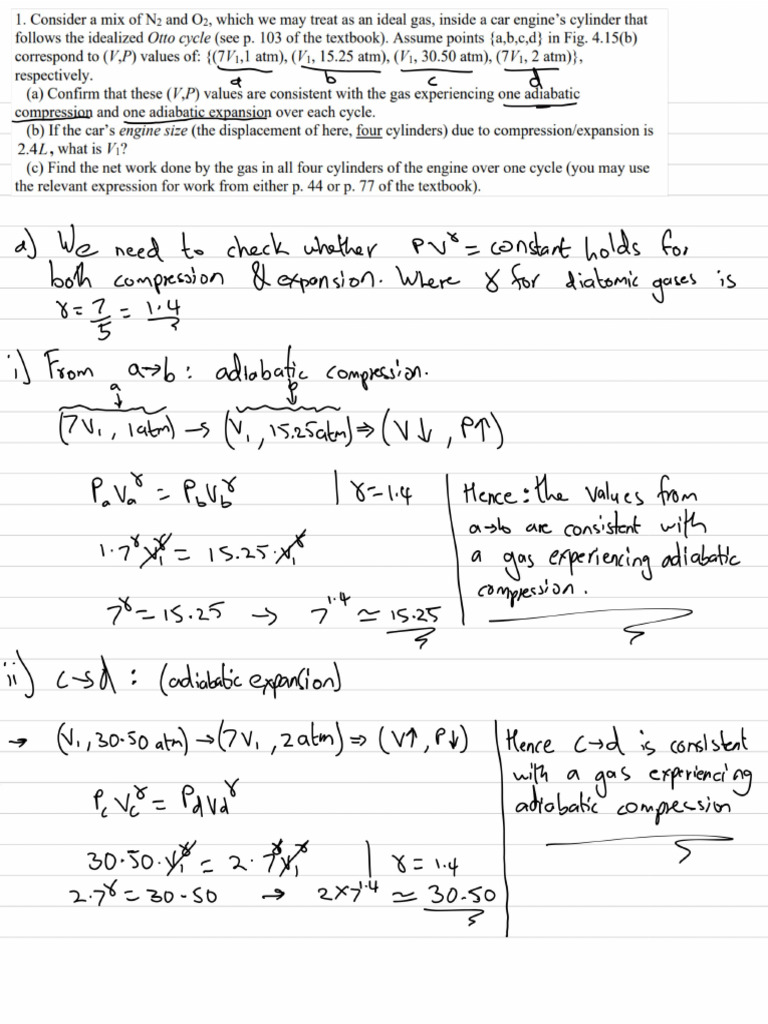 1. Consider a mix of N₂ and O₂, which we may treat as an ideal gas, inside a car engine's cylinder that
follows the idealized Otto cycle (see p. 103 of the textbook). Assume points {a,b,c,d} in Fig. 4.15(b)
correspond to (V,P) values of: {(7V₁,1 atm), (V₁, 15.25 atm), (V₁, 30.50 atm), (7V₁, 2 atm)},
respectively.
a b c d
(a) Confirm that these (V,P) values are consistent with the gas experiencing one adiabatic
compression and one adiabatic expansion over each cycle.
(b) If the car's engine size (the displacement of here, four cylinders) due to compression/expansion is
2.4L, what is V₁?
(c) Find the net work done by the gas in all four cylinders of the engine over one cycle (you may use
the relevant expression for work from either p. 44 or p. 77 of the textbook).
a) We need to check whether PV^γ = constant holds for
both compression & expansion. Where γ for diatomic gases is
γ = 7/5 = 1.4
i) From a→b : adiabatic compression.
a b
(7V₁, 1atm) → (V₁, 15.25atm) ⇒ (V↓, P↑)
PₐVₐ^γ = P_bV_b^γ | γ=1.4
1·7^γ V₁^γ = 15.25·V₁^γ
7^γ = 15.25 → 7^1.4 ≃ 15.25
Hence: the values from
a→b are consistent with
a gas experiencing adiabatic
compression.
ii) c→d : (adiabatic expansion)
→ (V₁, 30.50 atm) → (7V₁, 2atm) ⇒ (V↑, P↓)
P_cV_c^γ = P_dV_d^γ
30.50·V₁^γ = 2·7^γV₁^γ | γ = 1.4
2·7^γ = 30.50 → 2×7^1.4 ≃ 30.50
Hence c→d is consistent
with a gas experiencing
adiabatic compression